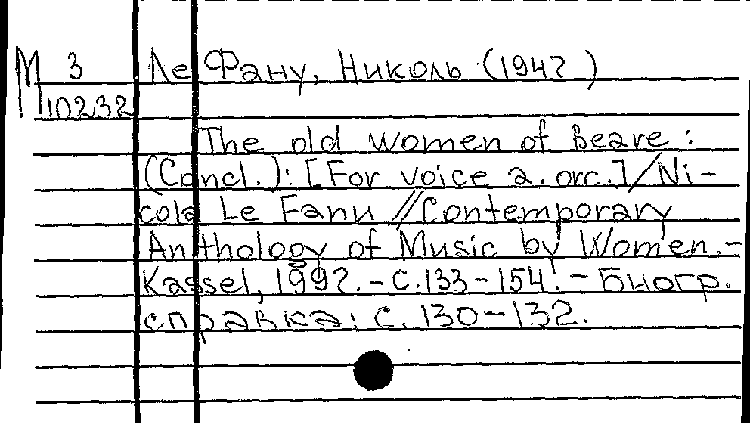 М 3 Ле Фану, Николь (1947 )
10232
The old women of Beare:
(Concl.): [For voice a. orc.]/Ni-
cola Le Fanu //Contemporary
Anthology of Music by Women.-
Kassel, 1997.-С.133-154.-Биогр.
справка: с.130-132.